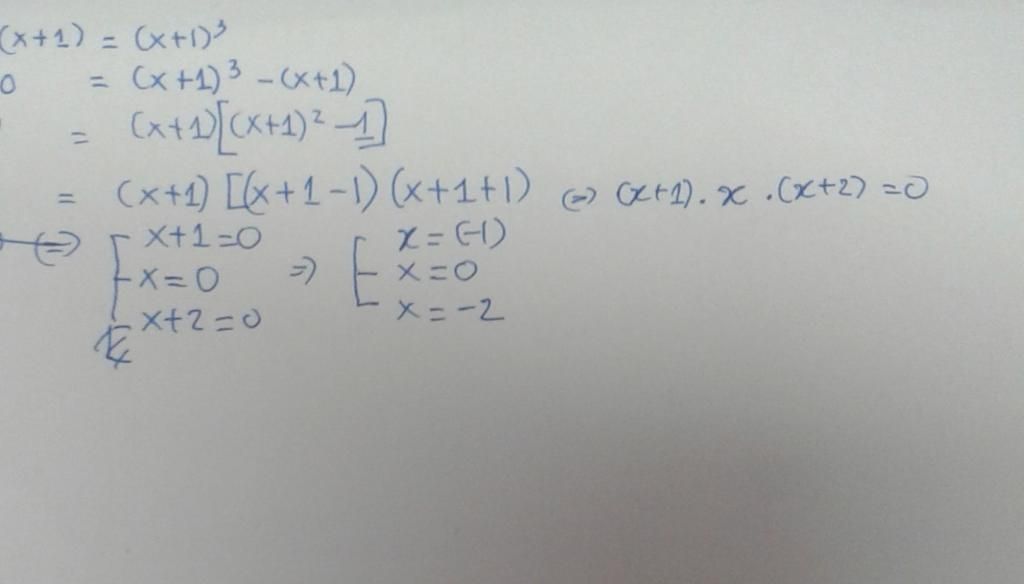 (x+1) = (x+1)³
0 = (x+1)³ - (x+1)
= (x+1)[(x+1)² - 1]
= (x+1) [(x+1-1) (x+1+1) (=) (x+1). x .(x+2) = 0
(=) [ x+1=0 => [ x = (-1)
x=0 x=0
x+2=0 x=-2